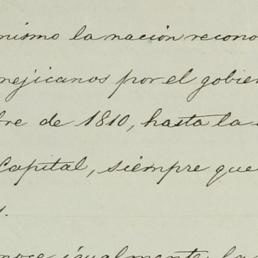 nismo la nación recono
mejicanos por el gobier
bre de 1810, hasta la
Capital, siempre que
s.
noce igualmente la